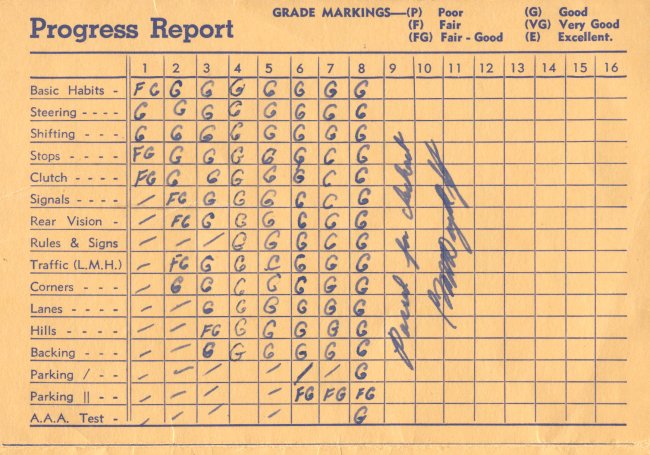 Progress Report
GRADE MARKINGS—(P) Poor (G) Good
(F) Fair (VG) Very Good
(FG) Fair - Good (E) Excellent.
1 2 3 4 5 6 7 8 9 10 11 12 13 14 15 16
Basic Habits - FG G G G G G G G
Steering - - - - G G G G G G G G
Shifting - - - G G G G G G G G
Stops - - - - FG G G G G G C G
Clutch - - - - FG G G G G G C G
Signals - - - - / FG G G G C C G
Rear Vision - / FG G G G G G G
Rules & Signs / / / G G G C G
Traffic (L.M.H.) / FG G G C G G G
Corners - - - / G G G G G G G
Lanes - - - - / / G G G G G G
Hills - - - - / / FG G G G G G
Backing - - - / / G G G G G G
Parking / - - / / / / / / G
Parking || - - / / / / FG FG FG
A.A.A. Test - / / / / G
Passed for